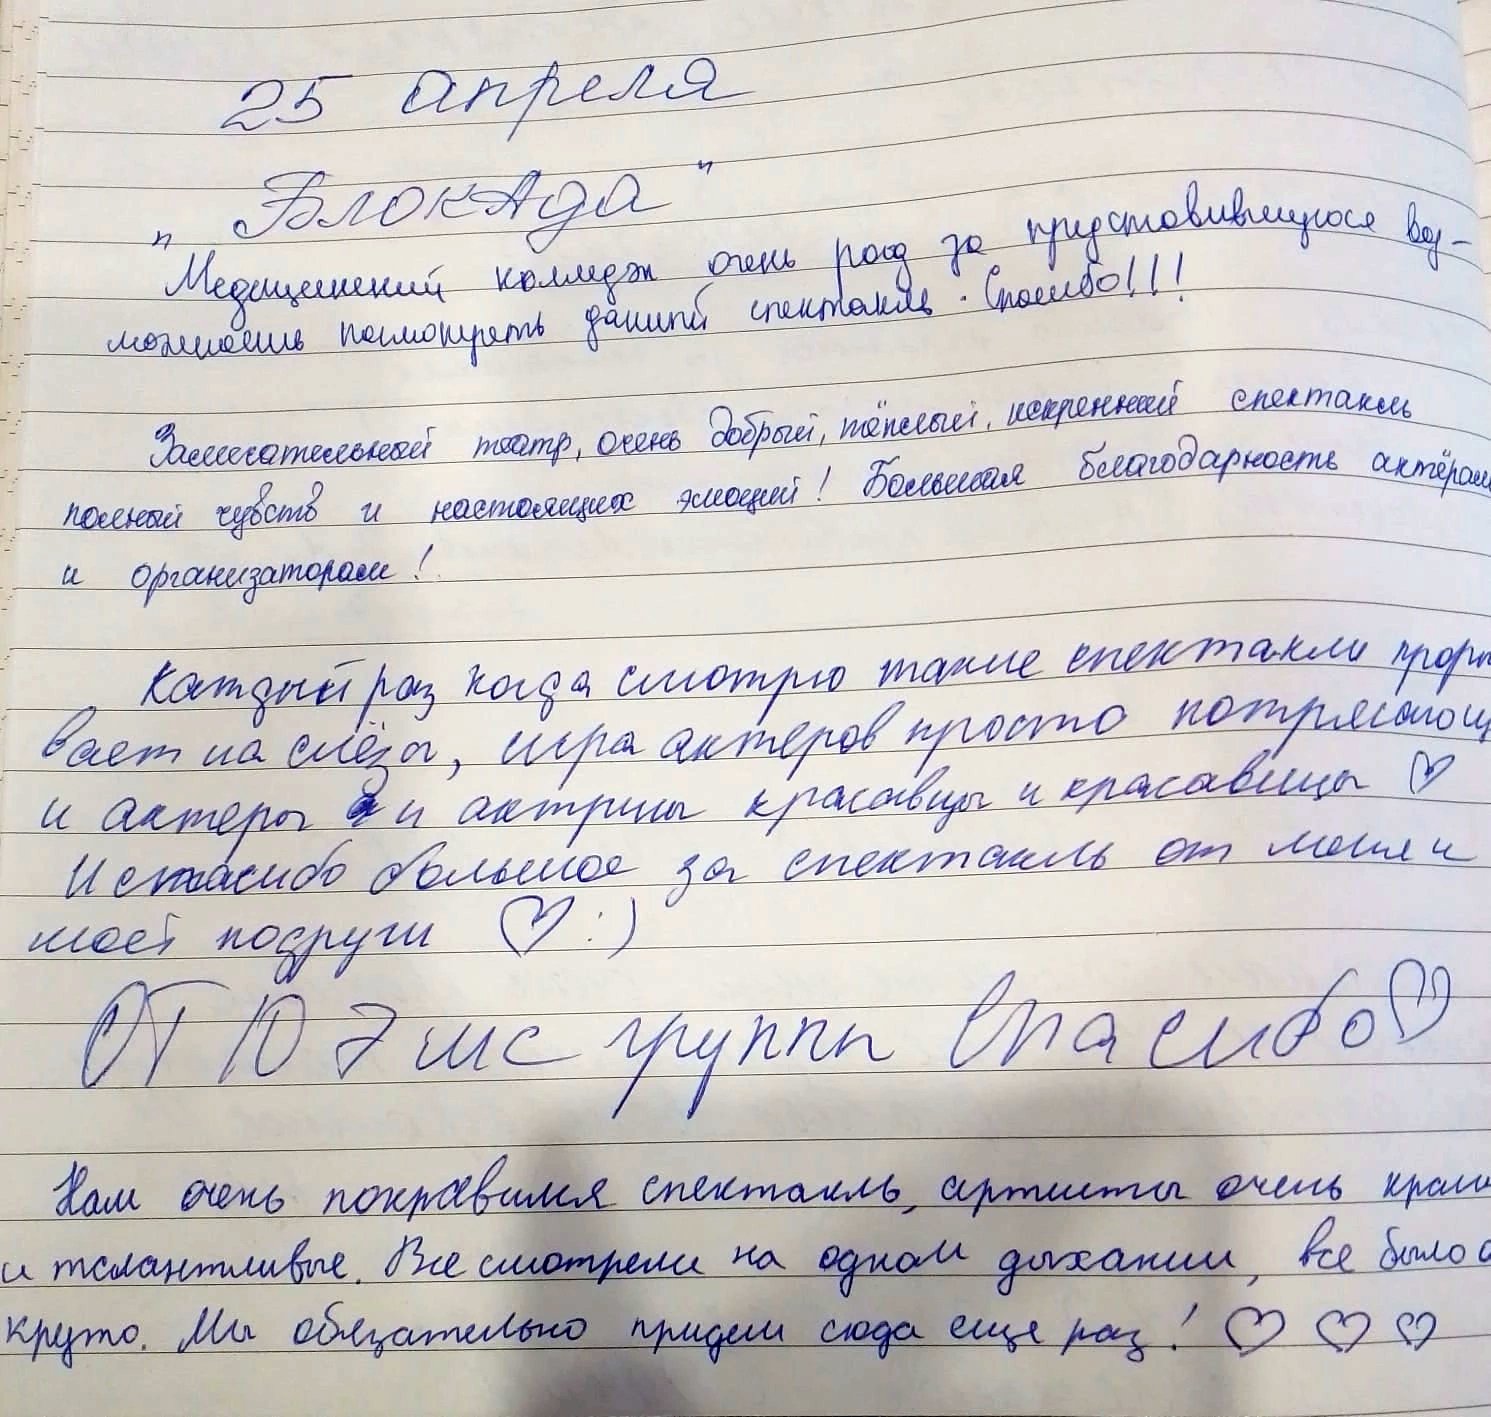 25 апреля
"БлокАда"
Медицинский колледж очень рад за представившуюся воз-
можность посмотреть данный спектакль. Спасибо!!!
Замечательный театр, очень добрый, тёплый, искренний спектакль
полный чувств и настоящих эмоций! Большая благодарность актёрам
и организаторам!
Каждый раз когда смотрю такие спектакли проры
вает на слёзы, игра актеров просто потрясающ
и актеры и актрисы красавцы и красавицы ♡
И спасибо большое за спектакль от меня и
моей подруги ♡ :)
От 10 группы Спасибо ♡
Нам очень понравился спектакль, артисты очень
и талантливые. Все смотрели на одном дыхании, все было
круто. Мы обязательно придем сюда еще раз! ♡ ♡ ♡